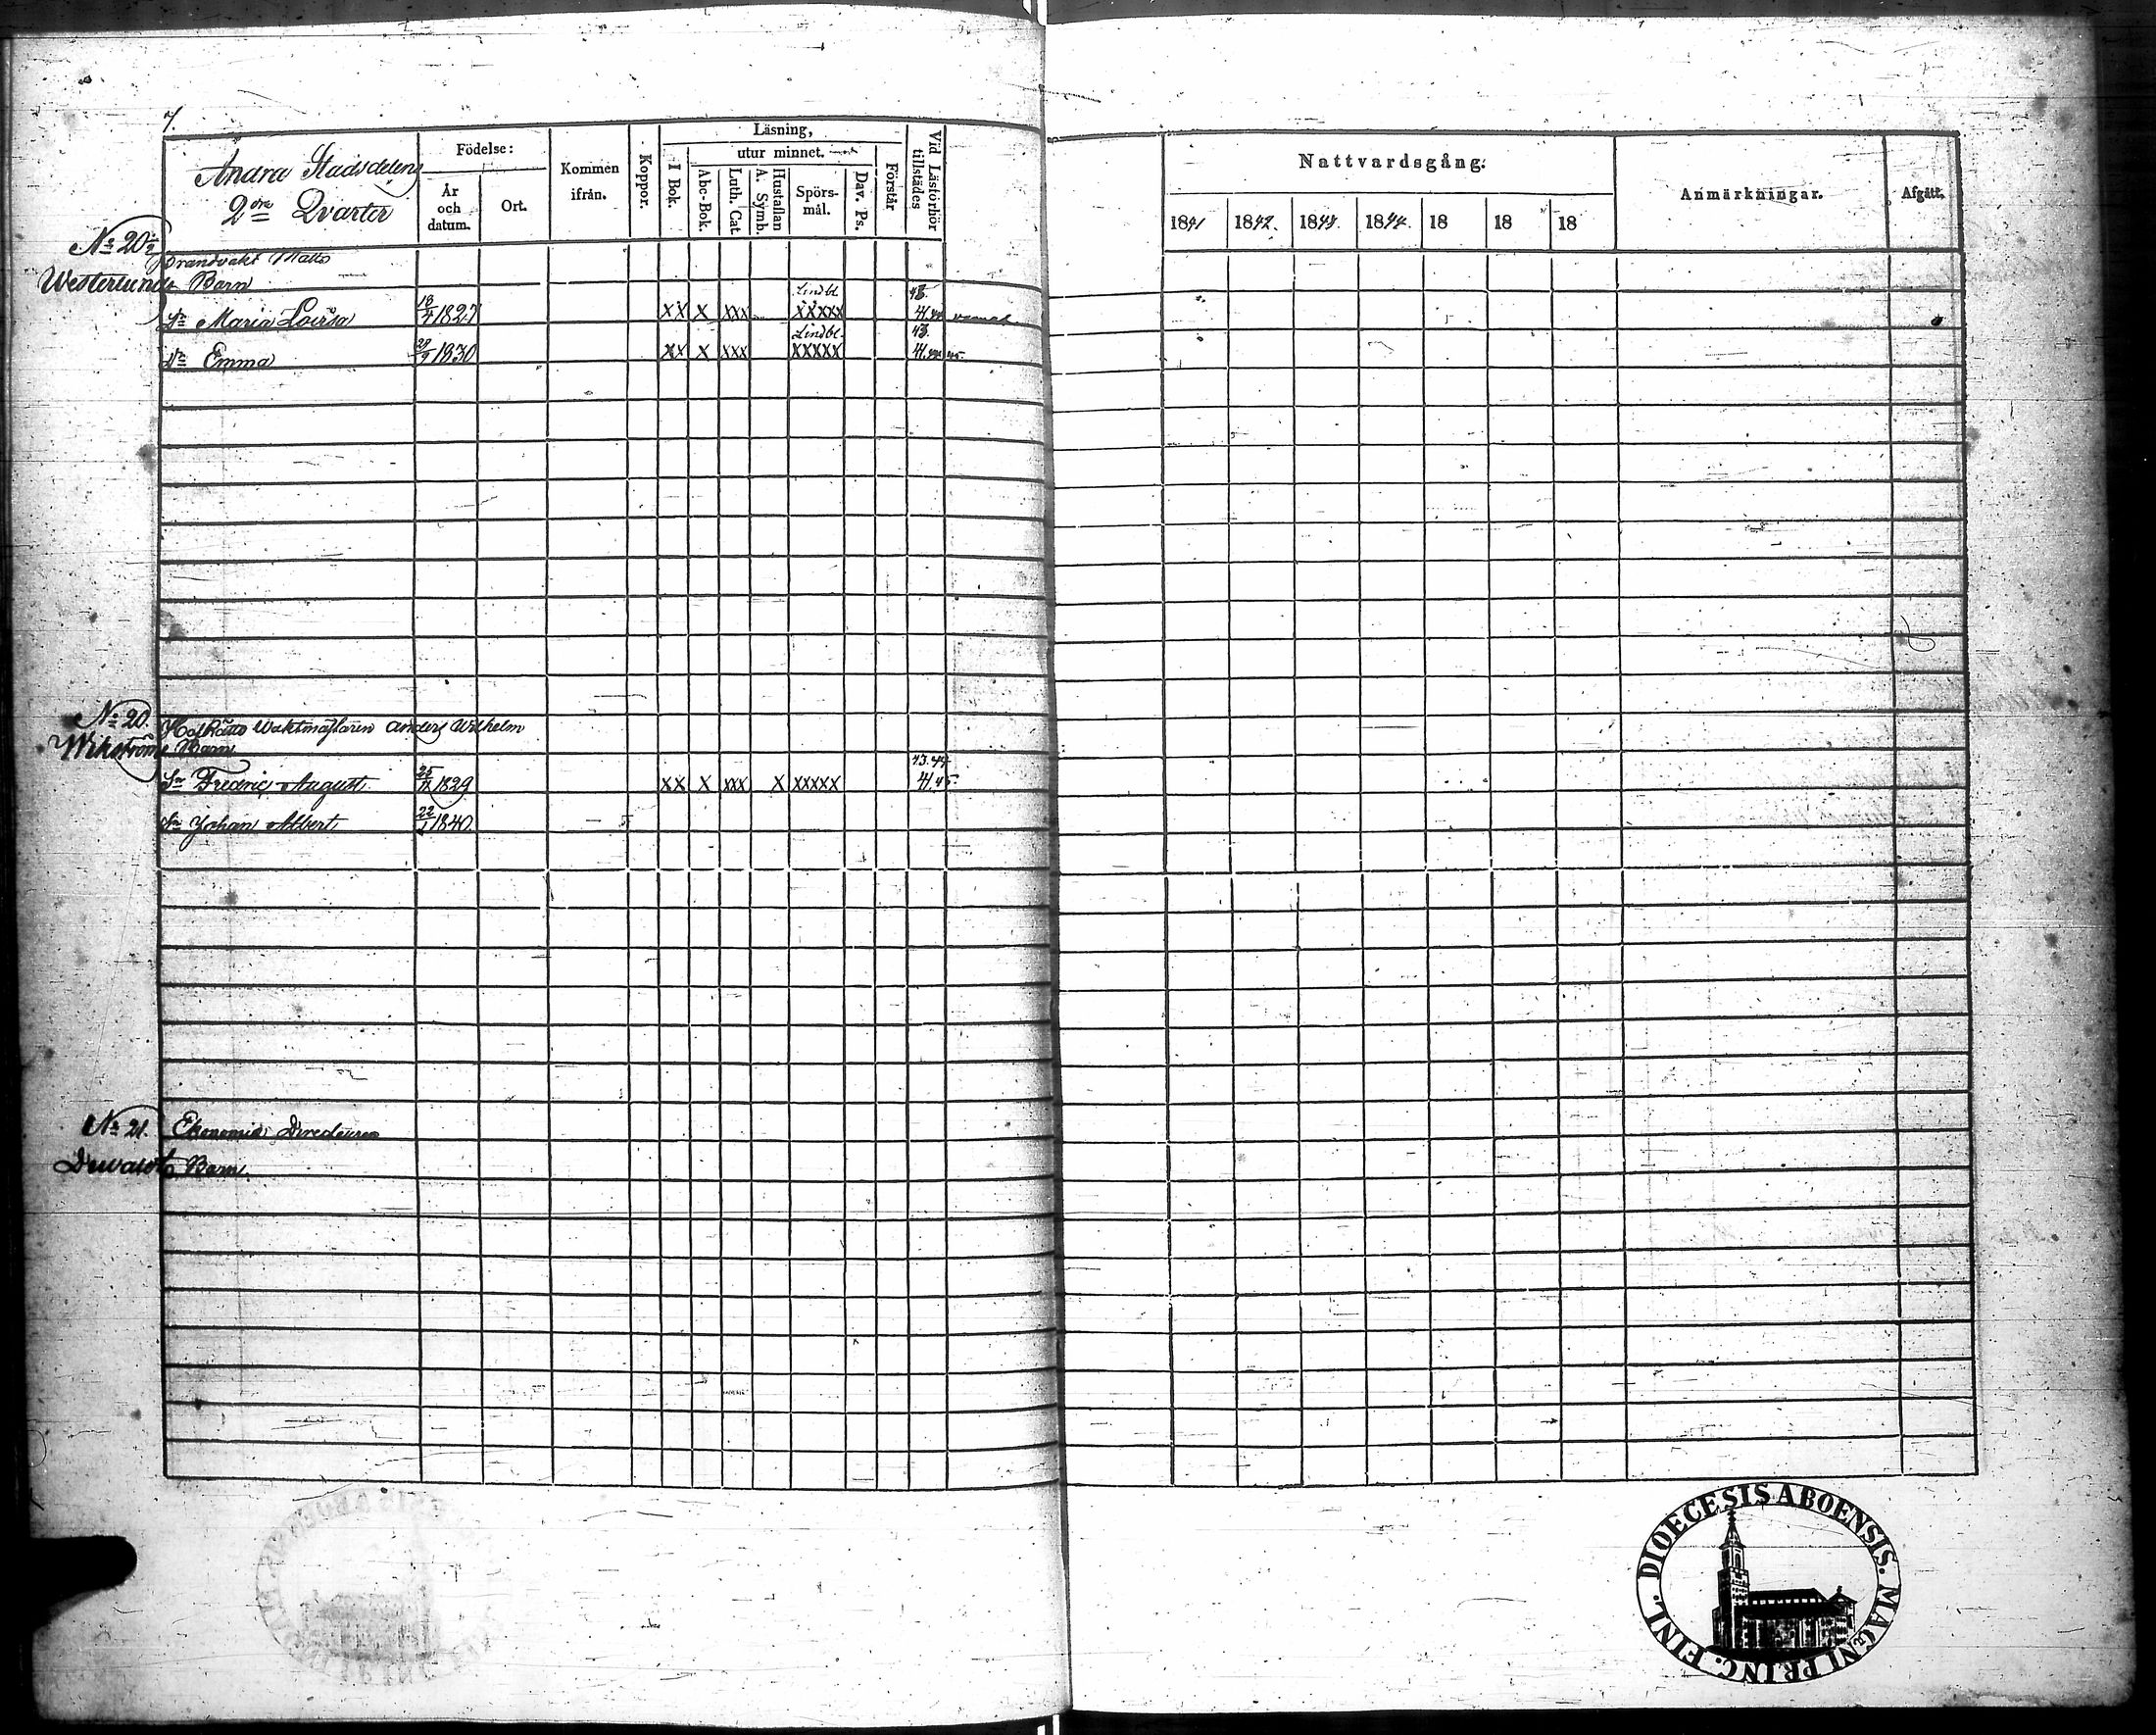 7.
Andra Stadsdelens
2dra Qvarter
Födelse:
År och datum.
Ort.
Kommen ifrån.
Koppor.
Läsning,
I Bok.
utur minnet.
Abc-Bok.
Luth. Cat.
Hustaflan A. Symb.
Spörsmål.
Dav. Ps.
Förstår
Vid Läsförhör tillstädes
Nattvardsgång.
1841 1842. 1843. 1844. 18 18 18
Anmärkningar.
Afgått.
No 20½ Brandvakt Matts
Westerlunds Barn
Dr Maria Lovisa 18/4 1827 XX X XXX Lindbl. XXXXX 43. 41.
Dr Emma 29/9 1830 XX X XXX Lindbl. XXXXX 43. 41.
No 20. Hofrätts Waktmästaren Anders Wilhelm
Wikströms Barn
Sn Fredric August 1829 XX X XXX X XXXXX 43.44. 41.45.
Sn Johan Albert 22/1 1840.
No 21. Ekonomie Directeuren
Barn.
DIOECESIS ABOENSIS. MAGNI PRINC. FINL.